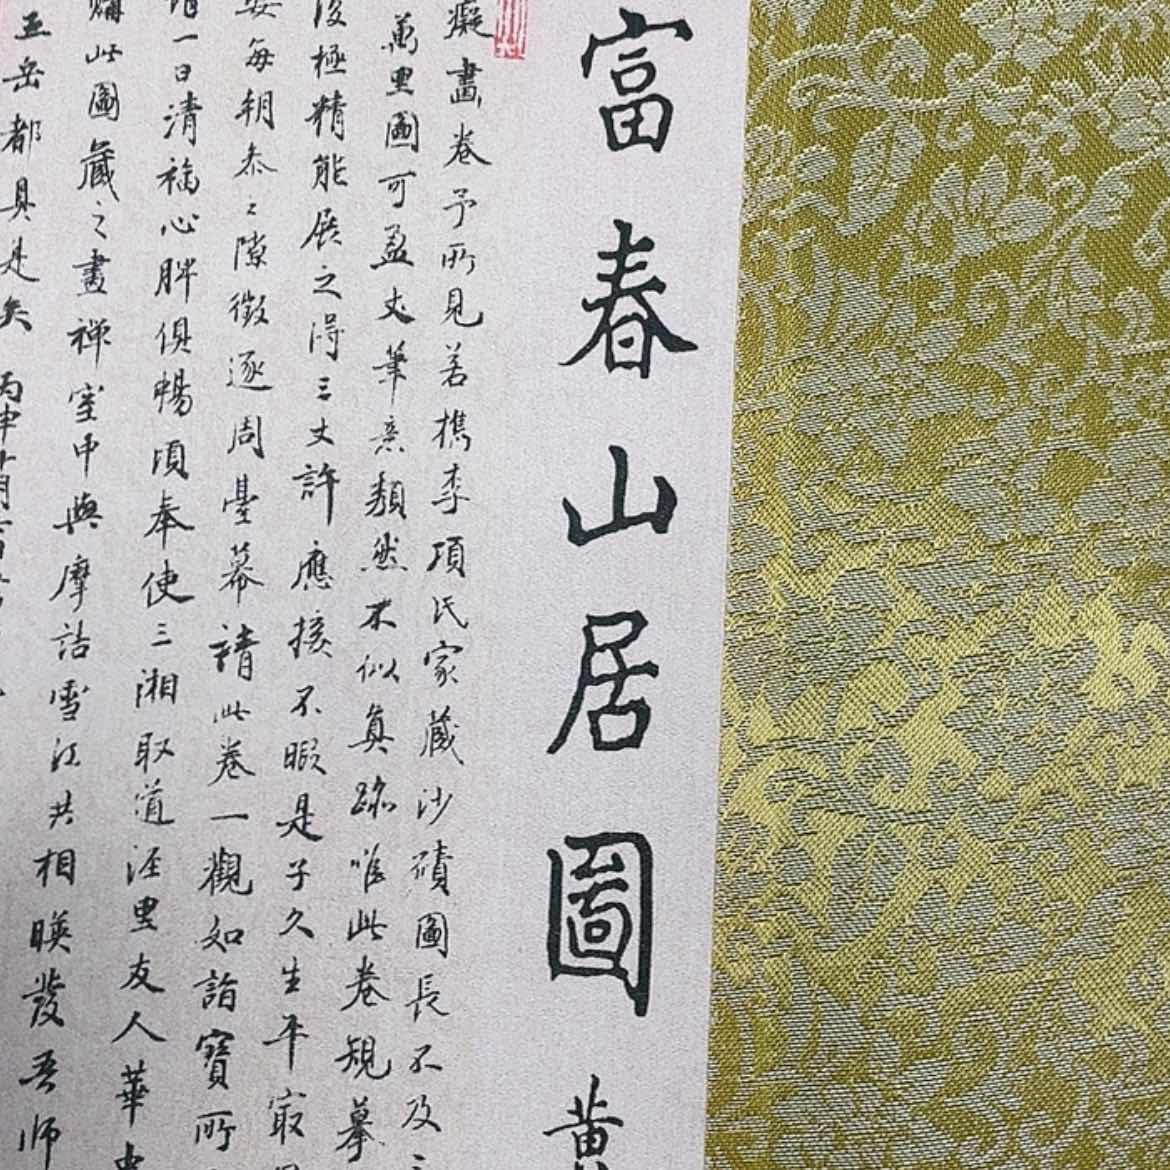 富春山居圖 黄
癡畫卷予所見若檇李項氏家藏沙磧圖長不及三
萬里圖可盈丈筆意頹然不似真跡唯此卷規摹
復極精能展之得三丈許應接不暇是子久生平最
每朝叅之隙徵逐周臺幕請此卷一觀如詣寶所
一日清福心脾俱暢頃奉使三湘取道涇里友人華
購此圖藏之畫禪室中與摩詰雪江共相暎發吾師
五岳都具是矣丙申